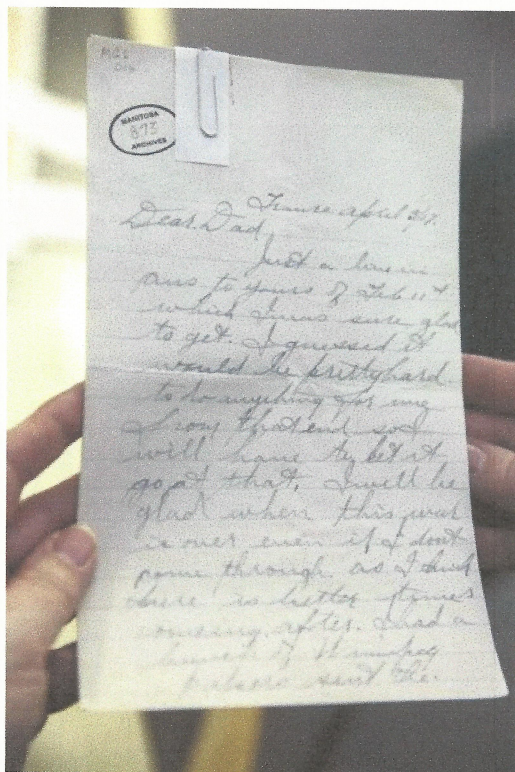 MANITOBA
ARCHIVES
France April
Dear Dad
Just a line in
ans to yours of Feb 11th
which I was sure glad
to get. I guessed it
would be pretty hard
to do anything for me
from that end so I
will have to let it
go at that. I will be
glad when this war
is over even if I dont
come through as I
there is better times
comeing after. I had a
bunch of Winnipeg
papers sent